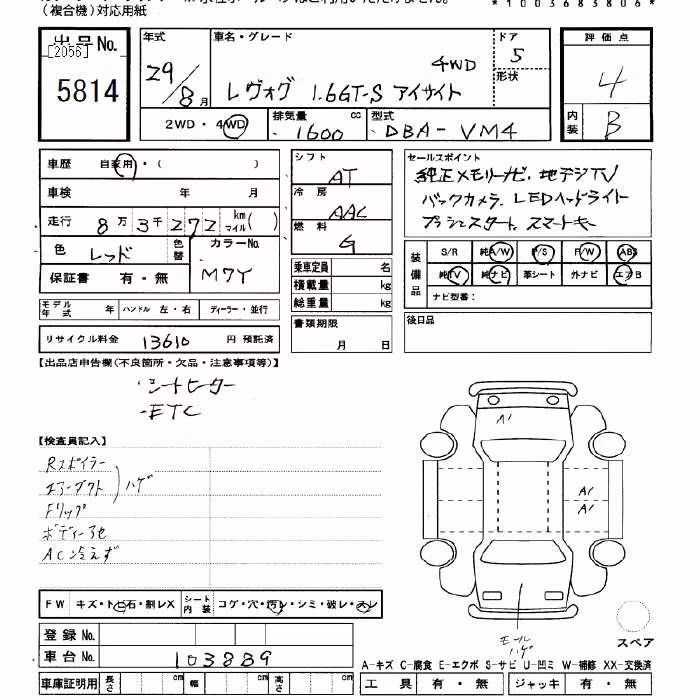 (複合機)対応用紙
*1003683806*
出品No.
[2056]
5814
年式
29/8月
車名・グレード
レヴォグ 1.6GT-S アイサイト
4WD
ドア
5
形状
2WD・4WD
排気量
1600 cc
型式
DBA-VM4
評価点
4
内装
B
車歴 自家用・( )
車検 年 月
走行 8万3千272 km マイル( )
色 レッド
色替
カラーNo.
M7Y
保証書 有・無
モデル年式 年
ハンドル 左・右
ディーラー・並行
リサイクル料金 13610 円 預託済
シフト
AT
冷房
AAC
燃料
G
乗車定員 名
積載量 kg
総重量 kg
書類期限
月 日
セールスポイント
純正メモリーナビ、地デジTV
バックカメラ、LEDヘッドライト
プッシュスタート、スマートキー
装備品
S/R 純A/W P/S F/W ABS
純TV 純ナビ 革シート 外ナビ エアB
ナビ型番:
後日品
【出品店申告欄(不良箇所・欠品・注意事項等)】
・シートヒーター
・ETC
【検査員記入】
Rスポイラー
エアーダクト
Fリップ
ハゲ
ボディー3色
AC冷えず
A1
A1
A1
モール
ハゲ
スペア
FW キズ・トビ石・割レX
シート内装 コゲ・穴・汚レ・シミ・破レ・スレ
登録No.
車台No. 103889
車庫証明用 長さ cm 幅 cm 高さ cm
A-キズ C-腐食 E-エクボ S-サビ U-凹ミ W-補修 XX-交換済
工具 有・無 ジャッキ 有・無